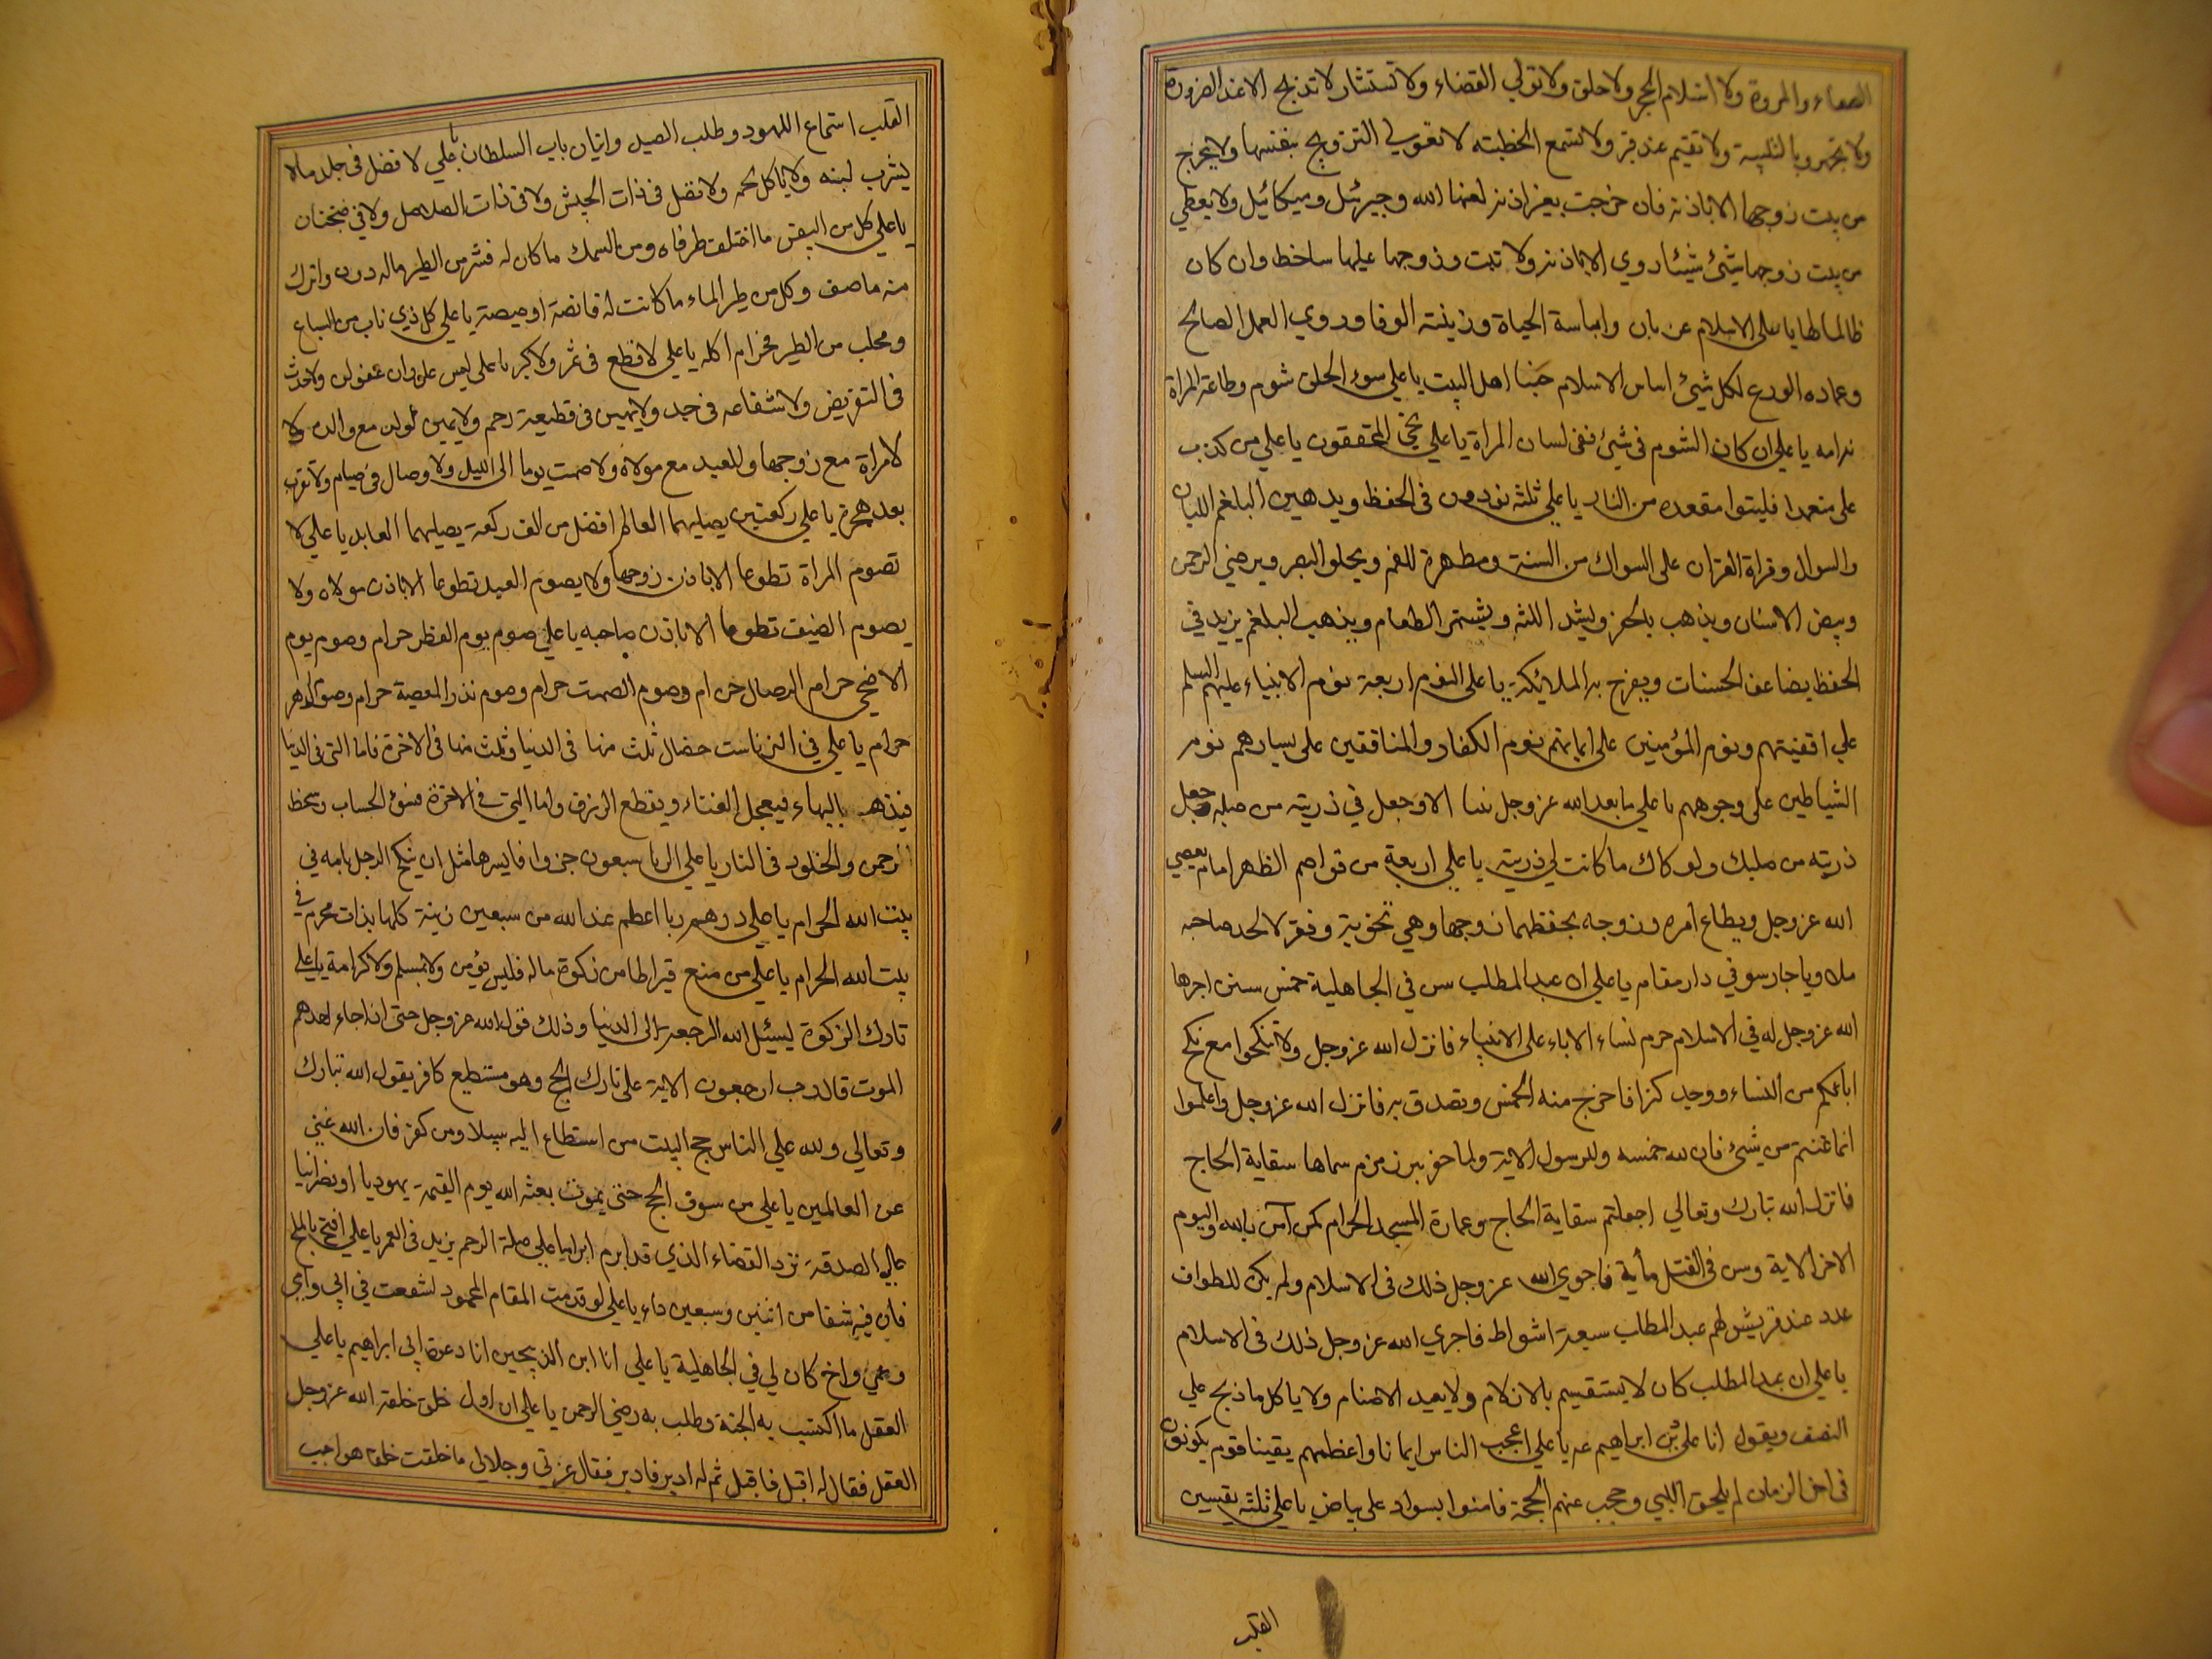 الصفاء والمروة ولا استلام الحجر ولا حلق ولا تولي القضاء ولا تستشار لا تذبح الا عند الضرورة
ولا تجهر بالتلبية ولا تقيم عند قبر ولا تسمع الخطبته لا تقولي التزويج بنفسها ولا يخرج
من بيت زوجها الا باذنه فان خرجت بغير اذنه لعنها الله وجبرئل وميكائيل ولا يعطي
من بيت زوجها شئ شيئا دوي الا باذنه ولا تبت وزوجها عليها ساخط وان كان
ظالما لها يا علي الاسلام عريان ولباسة الحياة وزينته الوفا ودوي العمل الصالح
وعماده الورع لكل شئ اساس الاسلام حبنا اهل البيت يا علي سوء الخلق شوم وطاعة المراة
ندامه يا علي ان كان الشوم في شئ ففي لسان المراة يا علي نجي المخففون يا علي من كذب
علي متعمدا فليتبوا مقعده من النار يا علي ثلثه نودون في الحفظ ويدهبن البلغم اللبان
والسوال وقراة القران علي السواك من السنة ومطهرة للفم ويجلو البصر ويرضي الرحمن
وبيض الاسنان ويذهب بالحفر ويشد اللثه ويشتهي الطعام ويذهب البلغم يزيد في
الحفظ يضاعف الحسنات ويفرح به الملائكة يا علي النوم اربعة نوم الانبياء عليهم السلم
علي اقفيتهم ونوم المؤمنين علي ايمانهم نوم الكفار والمنافقين علي يسارهم نوم
الشياطين علي وجوههم يا علي ما بعد الله عز وجل نبيا الا وجعل في ذريته من صلبه وجعل
ذريته من صلبك ولو كاك ما كانت لي ذريته يا علي اربعة من قواصم الظهر امام يعصي
الله عز وجل ويطاع امره وزوجه يحفظهما زوجها وهي تخونه وفقر لا يحد صاحبه
ملاويا جار سو في دار مقام يا علي ان عبد المطلب سن في الجاهلية خمس سنن اجرها
الله عز وجل له في الاسلام حرم نساء الاباء علي الانبياء فانزل الله عز وجل ولا تنكحوا مع نكح
اباءكم من النساء ووجد كنزا فاخرج منه الخمس وتصدق به فانزل الله عز وجل واعلموا
انما غنتم من شئ فان لله خمسه وللرسول الاية ولما حفر بير زمزم سماها سقاية الحاج
فانزل الله تبارك وتعالي اجعلتم سقاية الحاج وعمارة المسجد الحرام كمن آمن بالله واليوم
الاخر الاية وسن في القتل مأية فاجري الله عز وجل ذلك في الاسلام ولم يكن للطواف
عدد عند قريش لهم عبد المطلب سبعة اشواط فاجري الله عز وجل ذلك في الاسلام
يا علي ان عبد المطلب كان لا يستقسم بالازلام ولا يعبد الاصنام ولا ياكل ما ذبح علي
النصف ويقول انا علي بن ابراهيم عه يا علي اعجب الناس ايمانا واعظمهم يقينا قوم يكونون
في اخر الزمان لم يلحق النبي وحجب عنهم الحجة فامنوا بسواد علي بياض يا علي ثلثه يقسين
القلب
القلب استماع اللهو د وطلب الصيد واتيان باب السلطان يا علي لا فضل في جلد مالا
يشرب لبنه ولا ياكل لحمه ولا تفضل في ذات الجيش ولا في ذات الصلاصل ولا في ضجنان
يا علي كل من البيض ما اختلف طرفاه ومن السمك ما كان له قشر من الطير ماله درن واترك
منه ماصف وكل من طير الماء ما كانت له قانصة او صيصة يا علي كل ذي ناب من السباع
ومخلب من الطير فحرام اكله يا علي لا قطع في ثمر ولا كبر يا علي ليس علي دان عفولن ولا حدث
في التقريض ولا شفاعه في حد ولا يمين في قطيعة رحم ولا يمين لولد مع والده ولا
لامراة مع زوجها وللعبد مع مولاه ولا صمت يوما الي الليل ولا وصال في صيام ولا تقرب
بعد هجرة يا علي ركعتين يصليهما العالم افضل من الف ركعة يصليهما العابد يا علي لا
تصوم المراة تطوعا الا باذن زوجها ولا يصوم العبد تطوعا الا باذن مولاه ولا
يصوم الضيف تطوعا الا باذن صاحبه يا علي صوم يوم الفطر حرام وصوم يوم
الاضحي حرام الوصال حرام وصوم الصمت حرام وصوم نذر المعصية حرام وصوم الدهر
حرام يا علي في الزنا ست خصال ثلث منها في الدنيا وثلث منها في الاخرة فاما التي في الدنيا
فيذهب بالبهاء فيعجل الفناء ويقطع الرزق واما التي في الاخرة فسوء الحساب وسخط
الرحمن والخلود في النار يا علي الربا سبعون جزوا فايسرها مثل ان ينكح الرجل بامه في
بيت الله الحرام يا علي درهم ربا اعظم عند الله من سبعين زينة كلها بذات محرم في
بيت الله الحرام يا علي من منع قيراطا من زكوة ماله فليس بؤمن ولا بمسلم ولا كرامة يا علي
تارك الزكوة ليسئل الله الرجعة الي الدنيا وذلك قول الله عز وجل حتي اذا جاء احدهم
الموت قال رب ارجعون الاية علي تارك الحج وهو مستطيع كافر يقول الله تبارك
وتعالي ولله علي الناس حج البيت من استطاع اليه سبيلا ومن كفر فان الله غني
عن العالمين يا علي من سوف الحج حتي يموت بعثه الله يوم القيمة يهوديا او نصرانيا
يا علي الصدقة ترد القضاء الذي قد ابرم ابراميا علي صلة الرحم يزيد في العمر يا علي افتح بالملح
فان فيه شفا من اثنين وسبعين داء يا علي لو قدمت المقام المحمود لشفعت في ابي وامي
وعمي واخ كان لي في الجاهلية يا علي انا ابن الذبيحين انا دعوة ابي ابراهيم يا علي
العقل ما اكتسب به الجنة وطلب به رضي الرحمن يا علي ان اول خلق خلقه الله عز وجل
العقل فقال له اقبل فاقبل ثم له ادبر فادبر فقال عزتي وجلالي ما خلقت خلقا هو احب